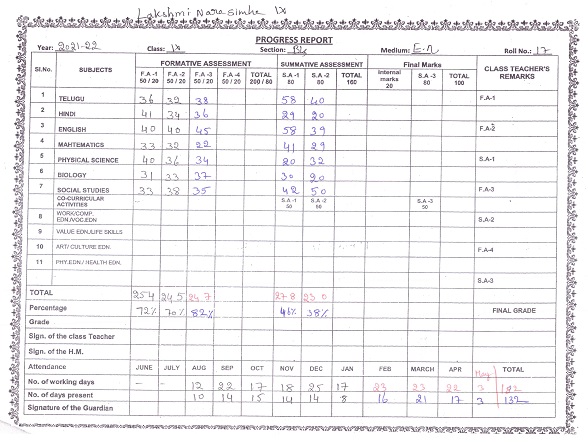 Lakshmi Narasimha IX
PROGRESS REPORT
Year: 2021-22 Class: IX Section: Medium: E.n Roll No.: 17
Sl.No. SUBJECTS FORMATIVE ASSESSMENT SUMMATIVE ASSESSMENT Final Marks CLASS TEACHER'S REMARKS
F.A -1 50 / 20 F.A -2 50 / 20 F.A -3 50 / 20 F.A -4 50 / 20 TOTAL 200 / 80 S.A -1 80 S.A -2 80 TOTAL 160 Internal marks 20 S.A -3 80 TOTAL 100
1 TELUGU 36 32 38 58 40 F.A-1
2 HINDI 41 34 36 29 20
3 ENGLISH 40 40 45 58 39 F.A-2
4 MAHTEMATICS 33 32 22 41 29
5 PHYSICAL SCIENCE 40 36 34 20 32 S.A-1
6 BIOLOGY 31 33 37 30 20
7 SOCIAL STUDIES 33 38 35 42 50 F.A-3
CO-CURRICULAR ACTIVITIES S.A -1 50 S.A -2 50 S.A -3 50
8 WORK/COMP. EDN./VOC.EDN S.A-2
9 VALUE EDN./LIFE SKILLS
10 ART/ CULTURE EDN. F.A-4
11 PHY.EDN / HEALTH EDN.
S.A-3
TOTAL 254 245 247 278 230
Percentage 72% 70% 82% 46% 38% FINAL GRADE
Grade
Sign. of the class Teacher
Sign. of the H.M.
Attendance JUNE JULY AUG SEP OCT NOV DEC JAN FEB MARCH APR May TOTAL
No. of working days - - 12 22 17 18 25 17 23 23 22 3 182
No. of days present 10 14 15 14 14 8 16 21 17 3 132
Signature of the Guardian